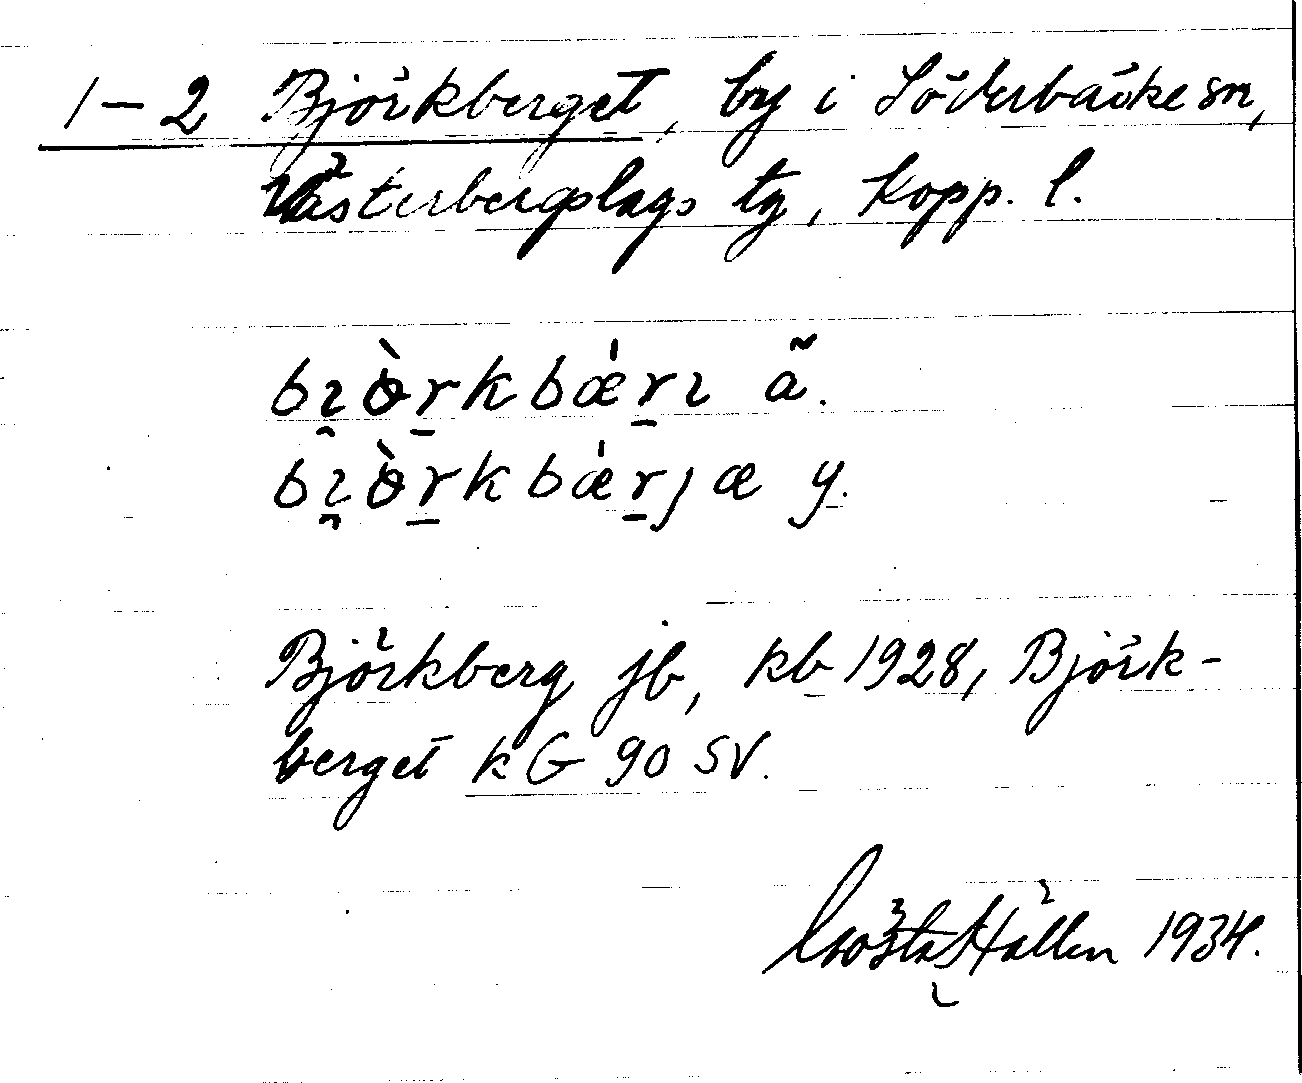 1-2 Björkberget, by i Söderbärke sn,
Västerbergslags tg, Kopp. l.
bɪ̯ɵ̀r̠kbǽr̠ɪ ã.
bɪ̯ɵ̀r̠kbǽr̠jæ y.
Björkberg jb, kb 1928, Björk-
berget kG 90 SV.
Gösta Hallen 1934.